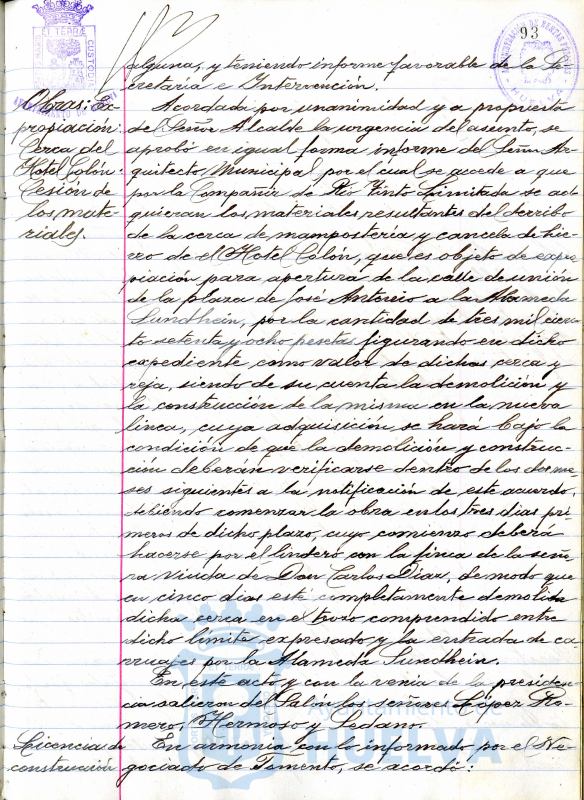 93
alguna, y teniendo informe favorable de la Se-
cretaría e Intervención.
Obras: Ex-
propiación
Cerca del
Hotel Colón:
Cesión de
los mate-
riales.
Acordada por unanimidad y a propuesta
del Señor Alcalde la urgencia del asunto, se
aprobó en igual forma informe del Señor Ar-
quitecto Municipal, por el cual se accede a que
por la Compañía de Rio Tinto Limitada se ad-
quieran los materiales resultantes del derribo
de la cerca de mampostería y cancela de hie-
rro de el Hotel Colón, que es objeto de expro-
piación para apertura de la calle de unión
de la plaza de José Antonio a la Alameda
Sundhein, por la cantidad de tres mil cien-
to setenta y ocho pesetas figurando en dicho
expediente, como valor de dichas cerca y
reja, siendo de su cuenta la demolición y
la construcción de la misma en la nueva
línea, cuya adquisición se hará bajo la
condición de que la demolición y construc-
ción deberán verificarse dentro de los dos me-
ses siguientes a la notificación de este acuerdo,
debiendo comenzar la obra en los tres días pri-
meros de dicho plazo, cuyo comienzo deberá
hacerse por el lindero con la finca de la seño-
ra Viuda de Don Carlos Díaz, de modo que
en cinco días esté completamente demolida
dicha cerca en el trozo comprendido entre
dicho límite expresado y la entrada de ca-
rruajes por la Alameda Sundhein.
En este acto, y con la venia de la presiden-
cia salieron del Salón los señores López Ro-
mero, Hermoso y Sedano.
Licencias de
construcción
En armonía con lo informado por el Ne-
gociado de Fomento, se acordó:
Ayuntamiento de
HUELVA